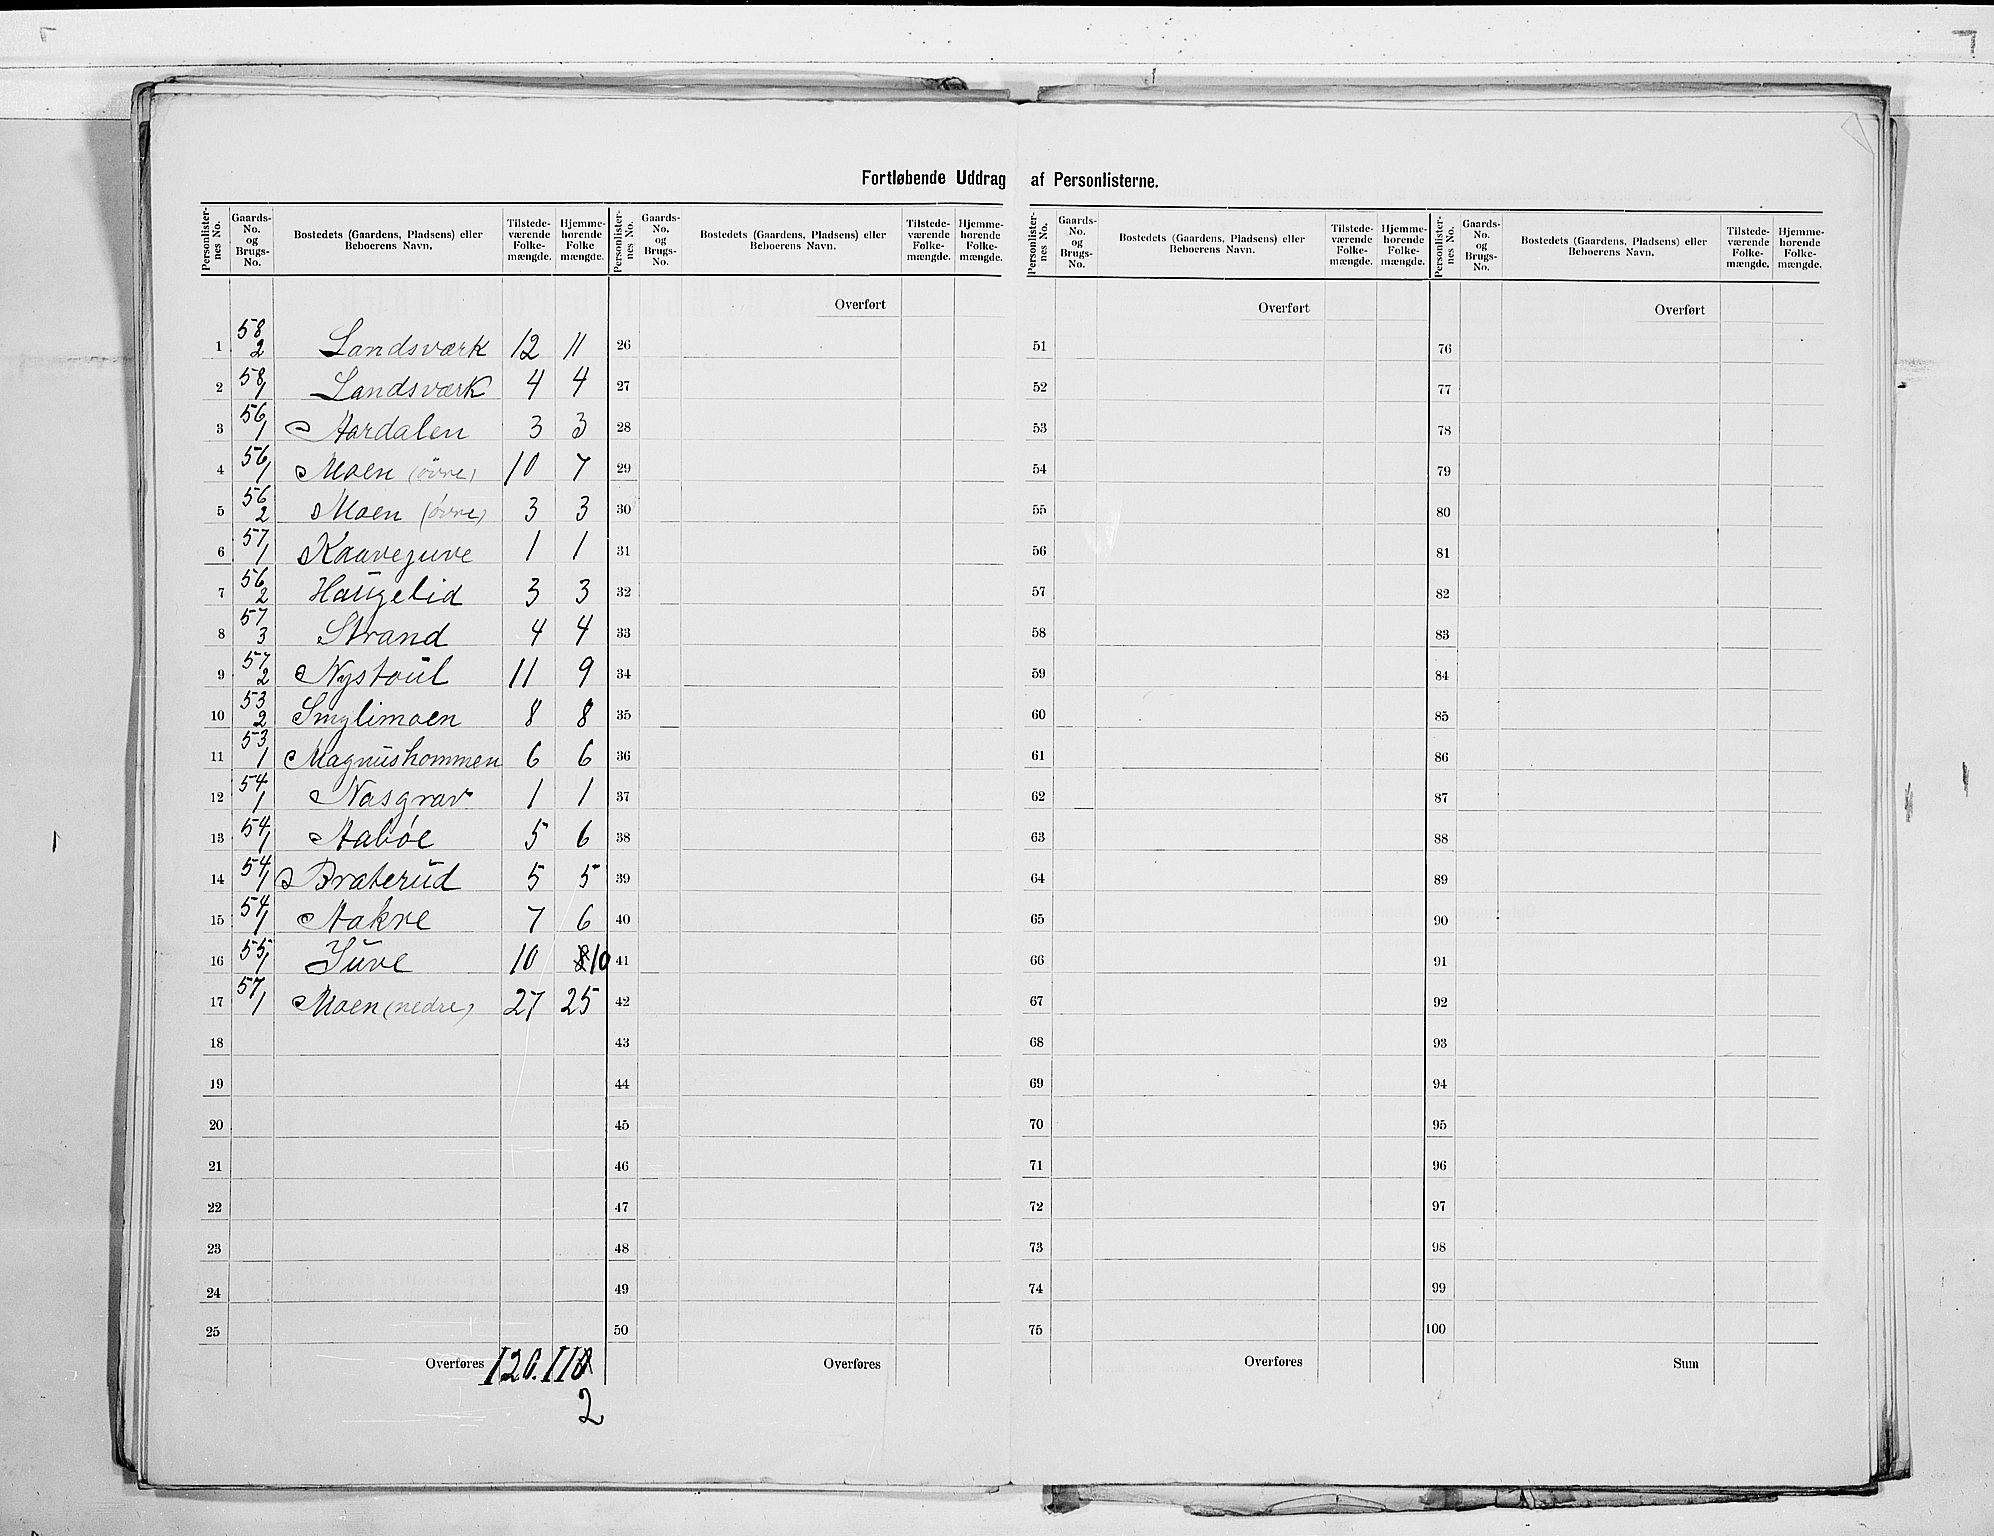 Fortløbende Uddrag af Personlisterne.
Personlisternes No. | Gaards-No. og Brugs-No. | Bostedets (Gaardens, Pladsens) eller Beboerens Navn. | Tilstedeværende Folkemængde. | Hjemmehørende Folke mængde. | Personlisternes No. | Gaards-No. og Brugs-No. | Bostedets (Gaardens, Pladsens) eller Beboerens Navn. | Tilstedeværende Folkemængde. | Hjemmehørende Folkemængde. | Personlisternes No. | Gaards-No. og Brugs-No. | Bostedets (Gaardens, Pladsens) eller Beboerens Navn. | Tilstedeværende Folkemængde. | Hjemmehørende Folkemængde. | Personlisternes No. | Gaards-No. og Brugs-No. | Bostedets (Gaardens, Pladsens) eller Beboerens Navn. | Tilstedeværende Folkemængde. | Hjemmehørende Folkemængde.
Overført Overført Overført
1 58/2 Landsværk 12 11 26 51 76
2 58/1 Landsværk 4 4 27 52 77
3 56/1 Aardalen 3 3 28 53 78
4 56/1 Moen (övre) 10 7 29 54 79
5 56/2 Moen (övre) 3 3 30 55 80
6 57/1 Kaavejuve 1 1 31 56 81
7 56/2 Haugelid 3 3 32 57 82
8 57/3 Strand 4 4 33 58 83
9 57/2 Nystoul 11 9 34 59 84
10 53/2 Smylimoen 8 8 35 60 85
11 53/1 Magnushommen 6 6 36 61 86
12 54/1 Nasgrav 1 1 37 62 87
13 54/1 Aabøe 5 6 38 63 88
14 54/1 Braterud 5 5 39 64 89
15 54/1 Aakre 7 6 40 65 90
16 55/1 Juve 10 8 10 41 66 91
17 57/1 Moen (nedre) 27 25 42 67 92
18 43 68 93
19 44 69 94
20 45 70 95
21 46 71 96
22 47 72 97
23 48 73 98
24 49 74 99
25 50 75 100
Overføres 120. 110 Overføres Overføres Sum
2